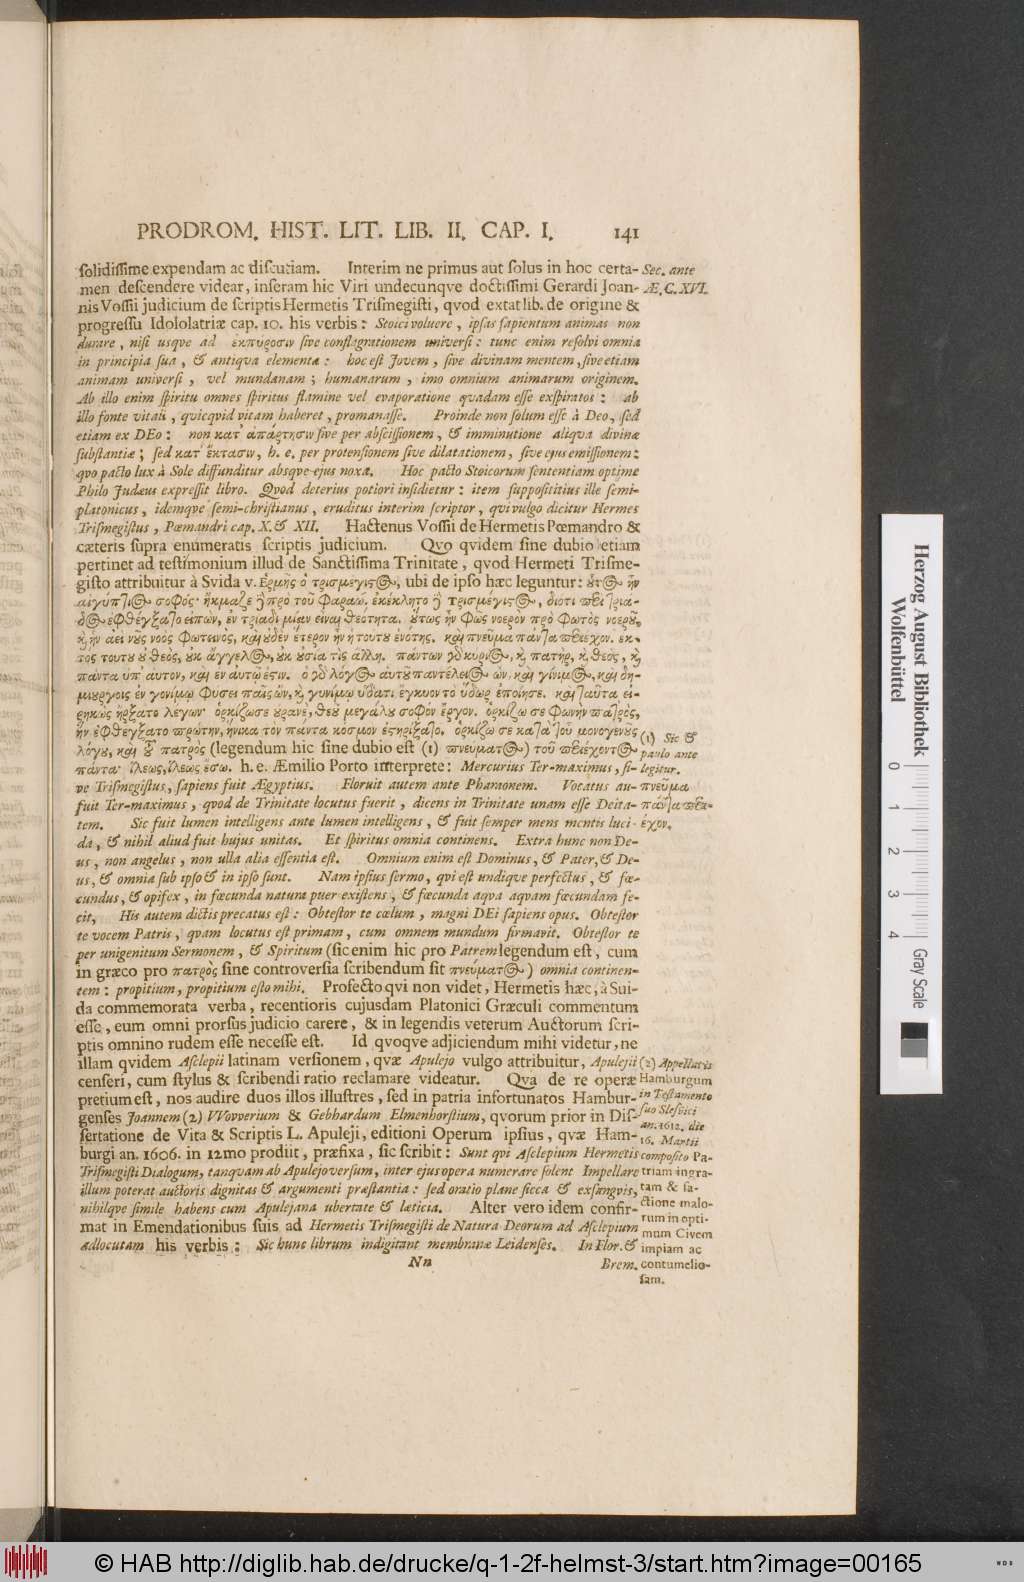 PRODROM. HIST. LIT. LIB. II. CAP. I. 141
ſolidiſſime expendam ac diſcutiam. Interim ne primus aut ſolus in hoc certa-
men deſcendere videar, inſeram hic Viri undecunqve doctiſſimi Gerardi Joan-
nis Voſſii judicium de ſcriptis Hermetis Triſmegiſti, qvod extat lib. de origine &
progreſſu Idololatriæ cap. 10. his verbis: Stoici voluere, ipſas ſapientum animas non
durare, niſi usqve ad ἐκπύρωσιν ſive conflagrationem univerſi: tunc enim reſolvi omnia
in principia ſua, & antiqva elementa: hoc eſt Jovem, ſive divinam mentem, ſive etiam
animam univerſi, vel mundanam; humanarum, imo omnium animarum originem.
Ab illo enim ſpiritu omnes ſpiritus flamine vel evaporatione quadam eſſe exſpiratos: ab
illo fonte vitali, quicqvid vitam haberet, promanaſſe. Proinde non ſolum eſſe à Deo, ſed
etiam ex DEo: non κατ' ἀπάρτησιν ſive per abſciſſionem, & imminutione aliqva divinæ
ſubſtantiæ; ſed κατ' ἔκτασιν, h. e. per protenſionem ſive dilatationem, ſive ejus emiſſionem:
qvo pacto lux à Sole diffunditur absqve ejus noxa. Hoc pacto Stoicorum ſententiam optime
Philo Judæus expreſſit libro. Qvod deterius potiori inſidietur: item ſuppoſititius ille ſemi-
platonicus, idemqve ſemi-chriſtianus, eruditus interim ſcriptor, qvi vulgo dicitur Hermes
Triſmegiſtus, Pœmandri cap. X. & XII. Hactenus Voſſii de Hermetis Pœmandro &
cæteris ſupra enumeratis ſcriptis judicium. Qvo qvidem ſine dubio etiam
pertinet ad teſtimonium illud de Sanctiſſima Trinitate, qvod Hermeti Triſme-
giſto attribuitur à Svida v. Ἑρμῆς ὁ τρισμέγιστος, ubi de ipſo hæc leguntur: οὗτος ἦν
αἰγύπτιος σοφός· ἤκμαζε δὲ πρὸ τοῦ Φαραώ, ἐκέκλητο δὲ τρισμέγιστος, διότι περὶ τριά-
δος ἐφθέγξατο εἰπών, ἐν τριάδι μίαν εἶναι θεότητα. οὕτως ἦν φῶς νοερὸν πρὸ φωτὸς νοεροῦ,
καὶ ἦν ἀεὶ νοῦς νοὸς φωτεινός, καὶ οὐδὲν ἕτερον ἦν ἡ τούτου ἑνότης. καὶ πνεῦμα πάντα περιέχον. ἐκ-
τὸς τούτου οὐ θεὸς, οὐκ ἄγγελος, οὐκ οὐσία τὶς ἄλλη. πάντων γὰρ κύριος, καὶ πατὴρ, καὶ θεὸς, καὶ
πάντα ὑπ' αὐτὸν, καὶ ἐν αὐτῷ ἐστιν. ὁ γὰρ λόγος αὐτοῦ παντέλειος ὢν, καὶ γόνιμος, καὶ δη-
μιουργὸς ἐν γονίμῳ φύσει παῖς ὢν, καὶ γονίμῳ ὕδατι ἔγκυον τὸ ὕδωρ ἐποίησε. καὶ ταῦτα εἰ-
ρηκὼς ηὔξατο λέγων· ὁρκίζω σε οὐρανὲ, θεοῦ μεγάλου σοφὸν ἔργον. ὁρκίζω σε φωνὴν πατρὸς,
ἣν ἐφθέγξατο πρώτην, ἡνίκα τὸν πάντα κόσμον ἐστηρίξατο. ὁρκίζω σε κατὰ τοῦ μονογενοῦς
λόγου, καὶ τοῦ πατρὸς (legendum hic ſine dubio eſt (1) πνεύματος) τοῦ περιέχοντος
πάντα· ἵλεως, ἵλεως ἔσω. h. e. Æmilio Porto interprete: Mercurius Ter-maximus, ſi-
ve Triſmegiſtus, ſapiens fuit Ægyptius. Floruit autem ante Pharaonem. Vocatus au-
fuit Ter-maximus, qvod de Trinitate locutus fuerit, dicens in Trinitate unam eſſe Deita-
tem. Sic fuit lumen intelligens ante lumen intelligens, & fuit ſemper mens mentis luci-
da, & nihil aliud fuit hujus unitas. Et ſpiritus omnia continens. Extra hunc non De-
us, non angelus, non ulla alia eſſentia eſt. Omnium enim eſt Dominus, & Pater, & De-
us, & omnia ſub ipſo & in ipſo ſunt. Nam ipſius ſermo, qvi eſt undiqve perfectus, & fœ-
cundus, & opifex, in fœcunda natura puer exiſtens, & fœcunda aqva aqvam fœcundam fe-
cit, His autem dictis precatus eſt: Obteſtor te cœlum, magni DEi ſapiens opus. Obteſtor
te vocem Patris, qvam locutus eſt primam, cum omnem mundum firmavit. Obteſtor te
per unigenitum Sermonem, & Spiritum (ſic enim hic pro Patrem legendum eſt, cum
in græco pro πατρὸς ſine controverſia ſcribendum ſit πνεύματος) omnia continen-
tem: propitium, propitium eſto mihi. Profecto qvi non videt, Hermetis hæc, à Sui-
da commemorata verba, recentioris cujusdam Platonici Græculi commentum
eſſe, eum omni prorſus judicio carere, & in legendis veterum Auctorum ſcri-
ptis omnino rudem eſſe neceſſe eſt. Id qvoqve adjiciendum mihi videtur, ne
illam qvidem Aſclepii latinam verſionem, qvæ Apulejo vulgo attribuitur, Apuleji
cenſeri, cum ſtylus & ſcribendi ratio reclamare videatur. Qva de re operæ
pretium eſt, nos audire duos illos illuſtres, ſed in patria infortunatos Hambur-
genſes Joannem (2) VVovverium & Gebhardum Elmenhorſtium, qvorum prior in Diſ-
ſertatione de Vita & Scriptis L. Apuleji, editioni Operum ipſius, qvæ Ham-
burgi an. 1606. in 12mo prodiit, præfixa, ſic ſcribit: Sunt qvi Aſclepium Hermetis
Triſmegiſti Dialogum, tanquam ab Apulejo verſum, inter ejus opera numerare ſolent Impellare
illum poterat auctoris dignitas & argumenti præſtantia: ſed oratio plane ſicca & exſangvis,
nihilqve ſimile habens cum Apulejana ubertate & læticia. Alter vero idem confir-
mat in Emendationibus ſuis ad Hermetis Triſmegiſti de Natura Deorum ad Aſclepium
adlocutam his verbis: Sic hunc librum indigitant membranæ Leidenſes. In Flor. &
Nn Brem.
Sec. ante
Æ. C. XVI.
(1) Sic &
paulo ante
legitur.
πνεῦμα
πάντα περι-
έχον.
(2) Appellatis
Hamburgum
in Teſtamento
ſuo Sleſvici
an. 1612. die
16. Martii
compoſito Pa-
triam ingra-
tam & ſa-
ctione malo-
rum in opti-
mum Civem
impiam ac
contumelio-
ſam.
Herzog August Bibliothek
Wolfenbüttel
0 1 2 3 4
Gray Scale
© HAB http://diglib.hab.de/drucke/q-1-2f-helmst-3/start.htm?image=00165